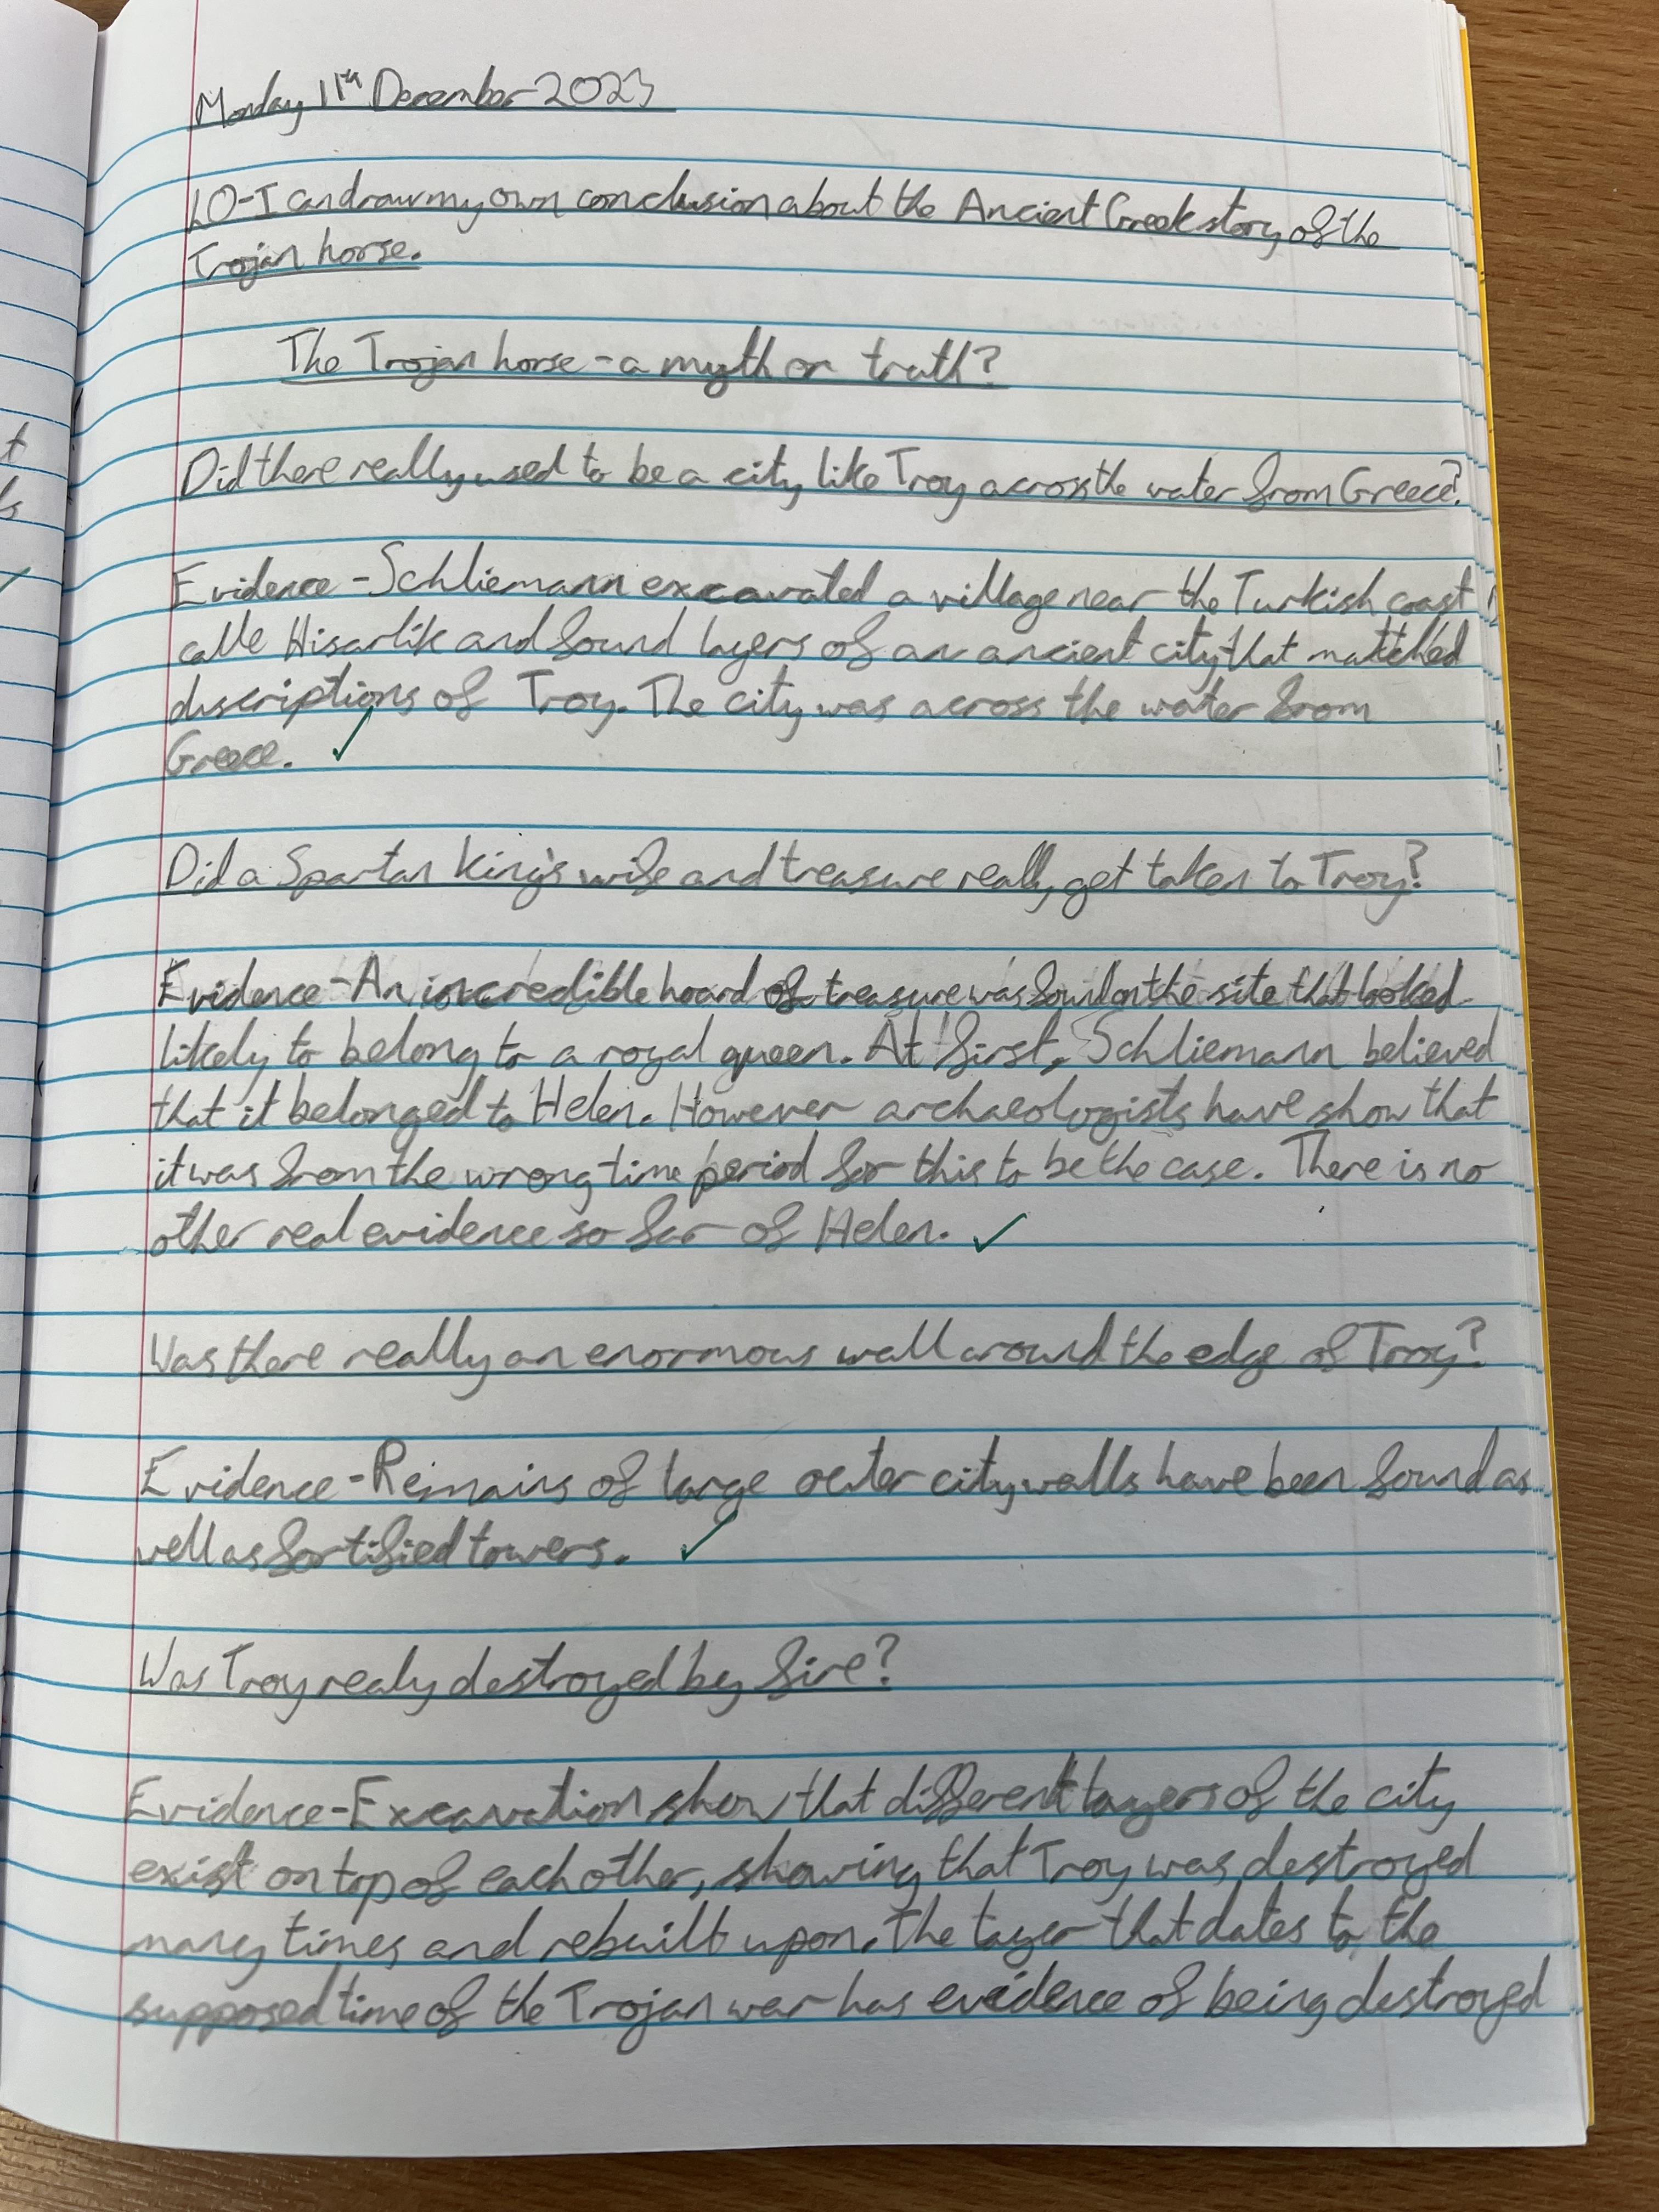 Monday 11th December 2023
LO-I can draw my own conclusion about the Ancient Greek story of the
Trojan horse.
The Trojan horse - a myth or truth?
Did there really used to be a city like Troy across the water from Greece?
Evidence - Schliemann excavated a village near the Turkish coast
calle Hisarlik and found layers of an ancient city that matched
descriptions of Troy. The city was across the water from
Greece.
Did a Spartan King's wife and treasure really get taken to Troy?
Evidence - An incredible hoard of treasure was found on the site that looked
likely to belong to a royal queen. At first, Schliemann believed
that it belonged to Helen. However archaeologists have show that
it was from the wrong time period for this to be the case. There is no
other real evidence so far of Helen.
Was there really an enormous wall around the edge of Troy?
Evidence - Remains of large outer city walls have been found as
well as fortified towers.
Was Troy realy destroyed by fire?
Evidence - Excavation show that different layers of the city
exist on top of each other, showing that Troy was destroyed
many times and rebuilt upon. The layer that dates to the
supposed time of the Trojan war has evidence of being destroyed